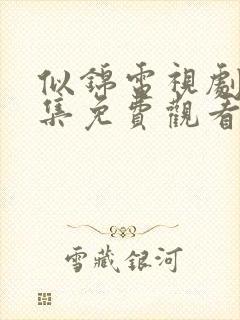 似錦雷視劇
集免費觀看
雪藏銀河